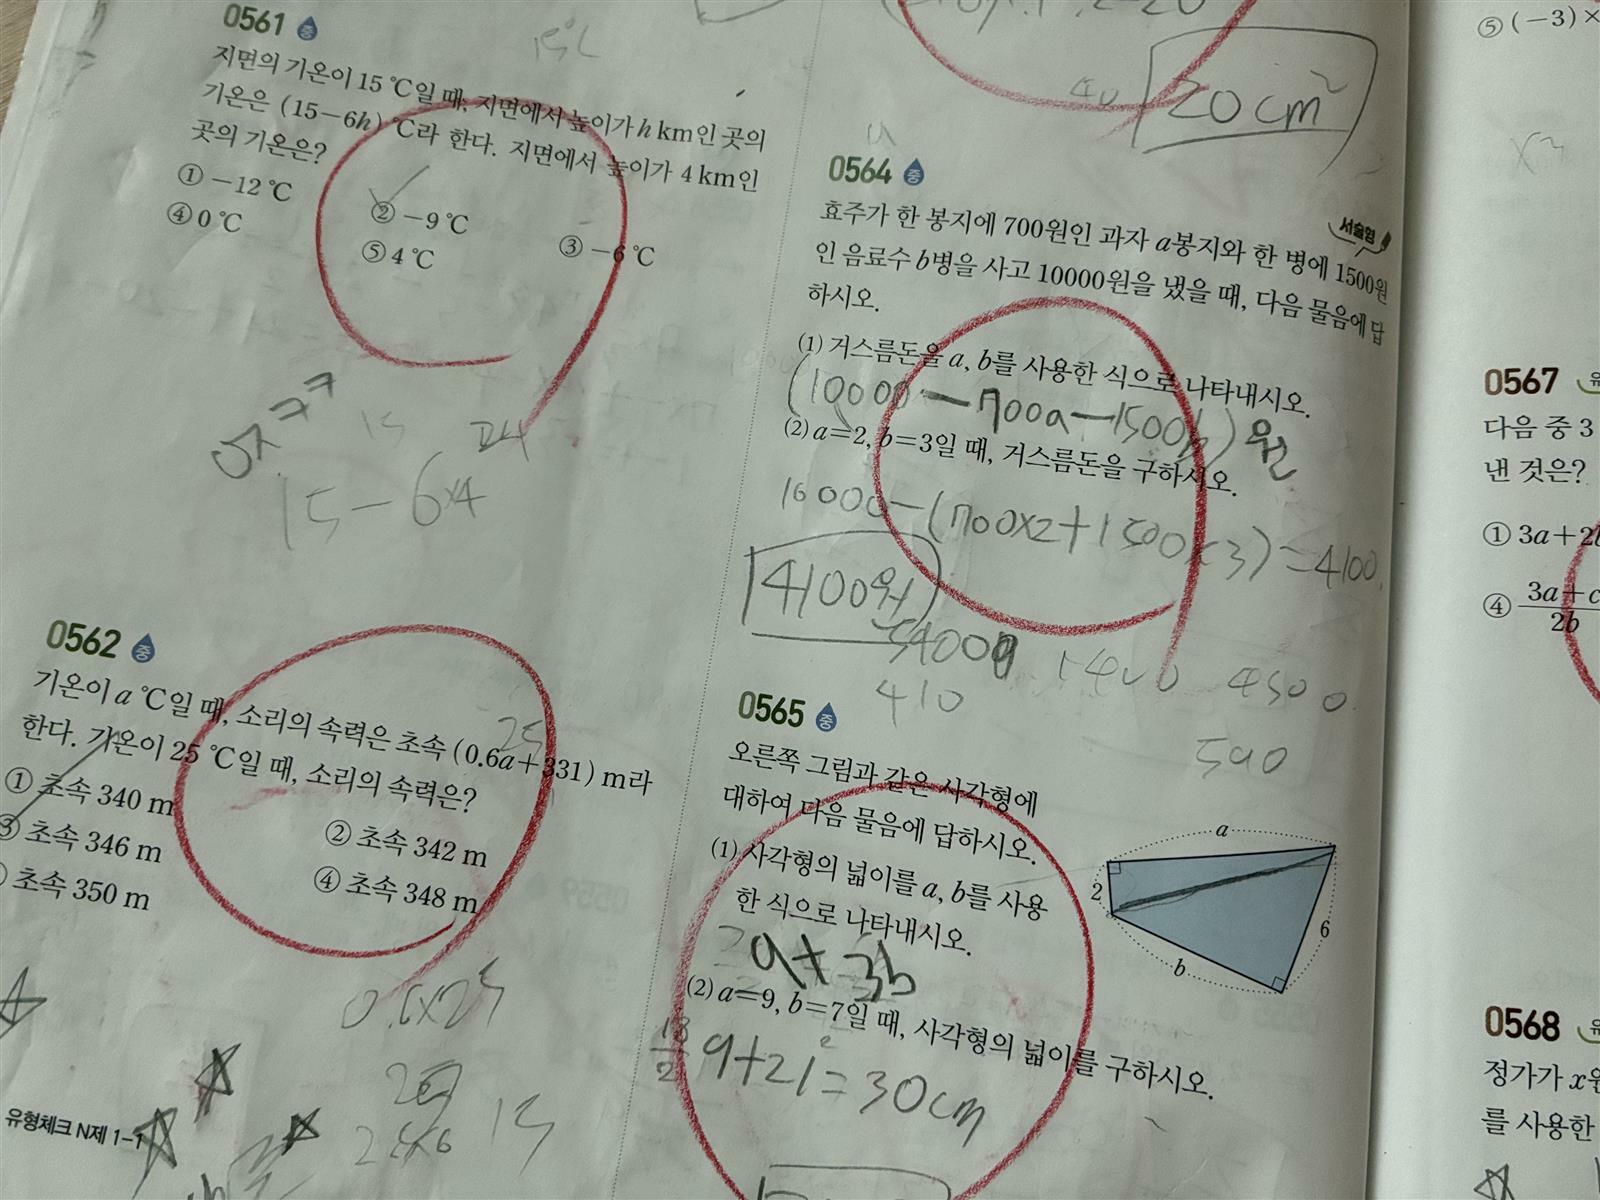 0561 중
15℃
지면의 기온이 15 ℃일 때, 지면에서 높이가 h km인 곳의
기온은 (15-6h) ℃라 한다. 지면에서 높이가 4 km인
곳의 기온은?
① -12 ℃
② -9 ℃
③ -6 ℃
④ 0 ℃
⑤ 4 ℃
15
24
15-6×4
0562 중
25
기온이 a ℃일 때, 소리의 속력은 초속 (0.6a+331) m라
한다. 기온이 25 ℃일 때, 소리의 속력은?
① 초속 340 m
② 초속 342 m
③ 초속 346 m
④ 초속 348 m
초속 350 m
0.6×25
25×6
15
유형체크 N제 1-1
40
20cm²
0564 중
서술형
효주가 한 봉지에 700원인 과자 a봉지와 한 병에 1500원
인 음료수 b병을 사고 10000원을 냈을 때, 다음 물음에 답
하시오.
(1) 거스름돈을 a, b를 사용한 식으로 나타내시오.
(10000-700a-1500b)원
(2) a=2, b=3일 때, 거스름돈을 구하시오.
10000-(700×2+1500×3)=4100
4100원
1400 4500
410
590
0565 중
오른쪽 그림과 같은 사각형에
대하여 다음 물음에 답하시오.
(1) 사각형의 넓이를 a, b를 사용
한 식으로 나타내시오.
a+3b
(2) a=9, b=7일 때, 사각형의 넓이를 구하시오.
9+21=30cm
a
2
6
b
⑤ (-3)×
0567
다음 중 3
낸 것은?
① 3a+2
④ 3a+c
2b
0568
정가가 x원
를 사용한